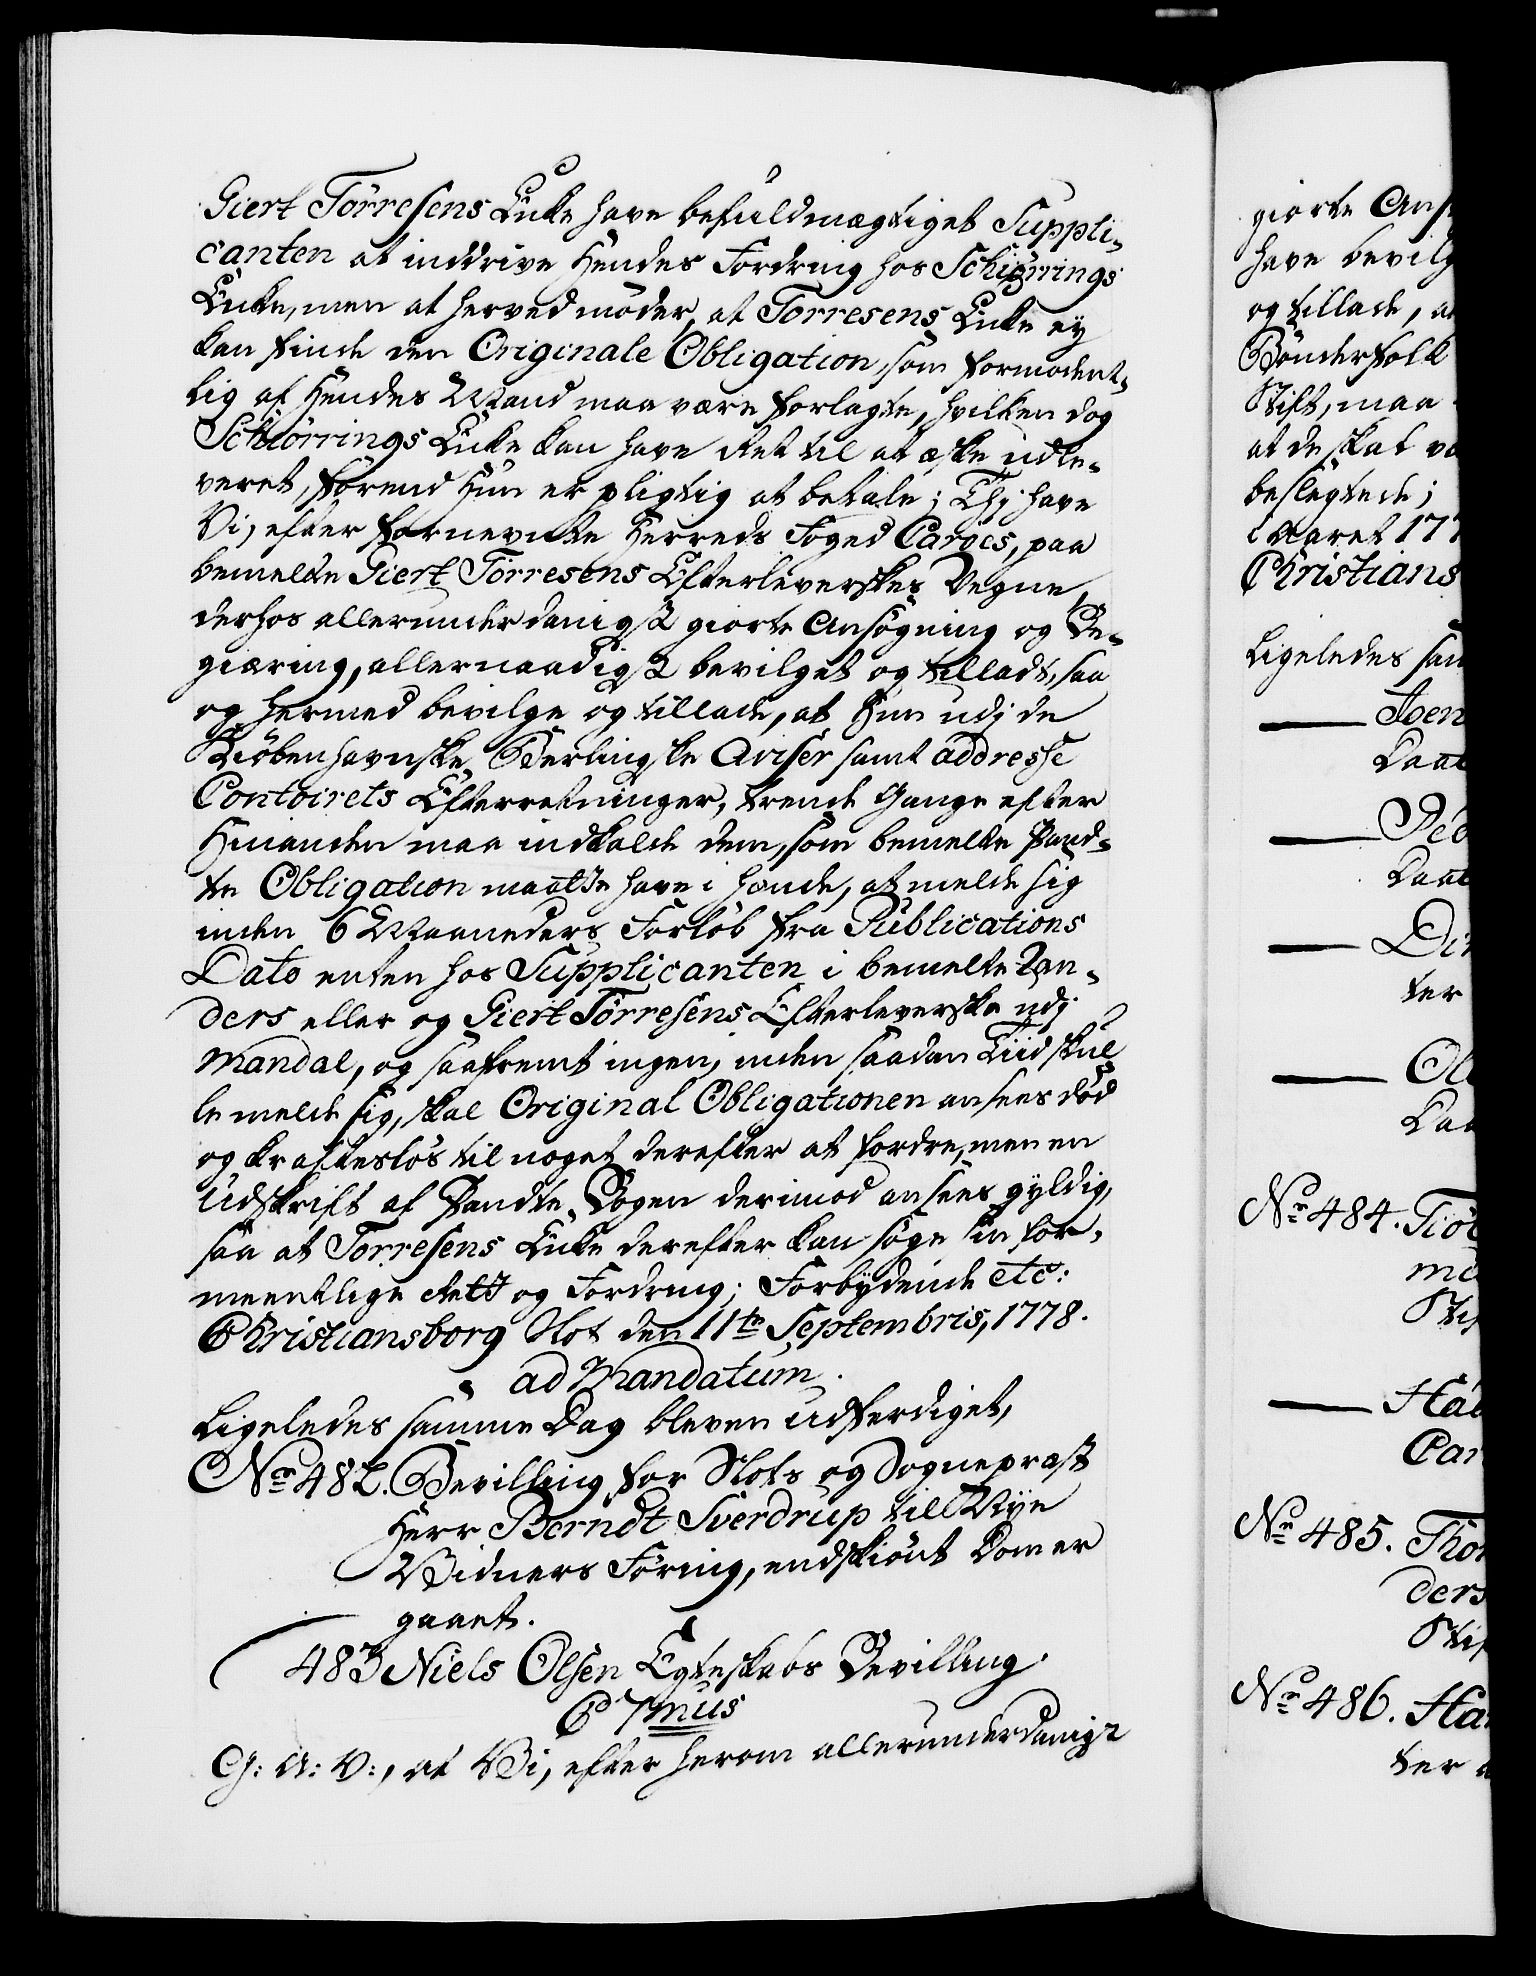 Giert Törresens Enke have befuldmægtiget Suppli-
canten at inddrive Hendes Fordring hos Schiörrings
Enke, men at herved möder, at Torresens Enke ey
kan finde den Originale Obligation, som formodent-
lig af Hendes Mand maa være forlagte, hvilken dog
Schiörrings Enke kan have Ret til at æske udle-
veret, förend Hun er pligtig at betale; Thj have
Vi, efter fornevnte Herreds Foged Carocs, paa
bemelte Giert Törresens Efterleverskes Vegne,
derhos allerunderdanigst giorte Ansögning og Be-
giæring, allernaadigst bevilget og tilladt, saa
og hermed bevilge og tillade, at Hun udj de
Kiöbenhavnske Berlingske Aviser samt addresse
Contoirets Efterretninger, trende Gange efter
Hinanden maa indkalde dem, som bemelte Pand-
te Obligation maatte have i hænde, at melde sig
inden 6 Maaneders Forlöb fra Publications
Dato enten hos Supplicanten i bemelte Ran-
ders eller og Giert Törresens Efterleverske udj
Mandal, og saafremt ingen, inden saadan Tiid skul-
le melde sig, skal Original Obligationen ansees död
og kraftteslös til noget derefter at fordre, men en
Udskrift af Pandte-Bogen derimod ansees gyldig,
saa at Torresens Enke derefter kan söge sin for-
meentlige Rett og Fordring; Forbydende etc:
Christiansborg Slot den 11te Septembris, 1778.
ad Mandatum.
Ligeledes samme Dag bleven udferdiget,
No 482. Bevilling for Slots og Sognepræst
Herr Berndt Sverdrup till Nye
Vidners Föring, endskiönt Dom er
gaaet.
483 Niels Olsen Egteskabs Bevilling.
C 7mus
G: A: V:, at Vi, efter herom allerunderdanigst
giorte Ans
have bevilg
og tillade, a
Bönderfolk
Stift, maa
at de skal
beslegtede;
Aaret 177
Christians
Ligeledes sam
Daat
Daat
ter
No 484.
No 485.
ders
No 486.
ter